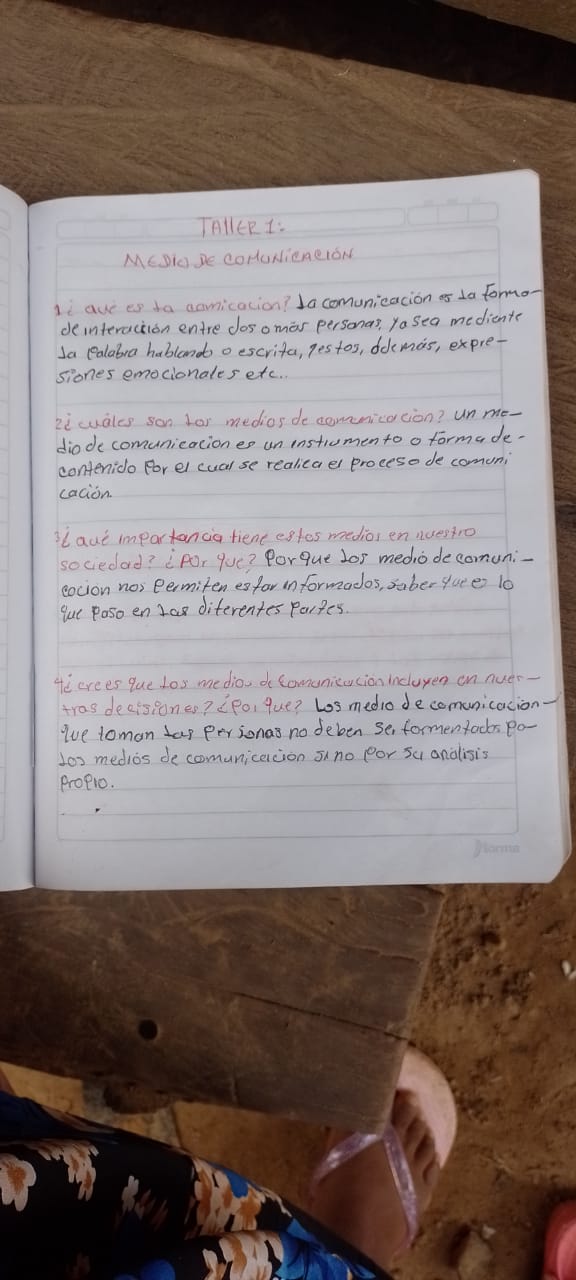 TALLER 1:
MEDIO DE COMUNICACIÓN
1¿ qué es la comicacion? La comunicación es la forma
de interacción entre dos o más personas, ya sea mediente
la palabra hablando o escrita, gestos, además, expre-
siones emocionales etc..
2¿ cuáles son los medios de comunicación? un me-
dio de comunicacion es un instrumento o forma de-
contenido por el cual se realiza el proceso de comuni
cación.
3¿ qué importancia tiene estos medios en nuestro
sociedad? ¿Por que? Porque los medio de comuni-
cocion nos permiten estar informados, saber que es lo
que paso en las diferentes partes.
4¿ crees que los medios de comunicacion incluyen en nues-
tras decisiones? ¿Por que? Los medio de comunicacion-
que toman las personas no deben ser formentados po-
los medios de comunicación sino por su análisis
propio.
norma